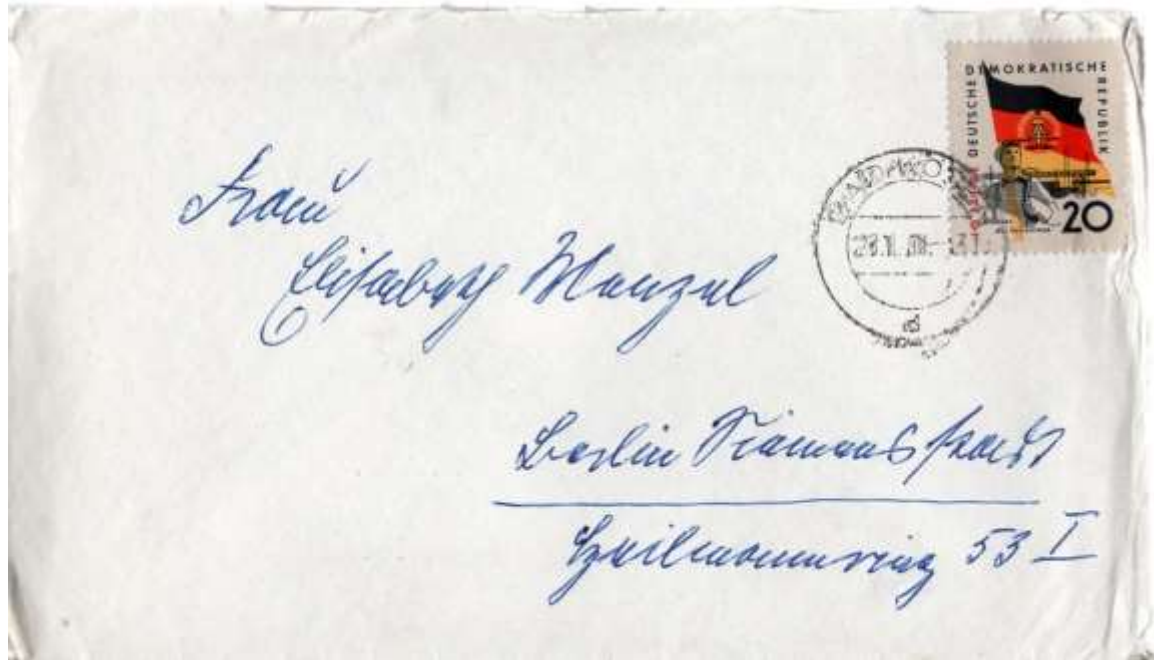 10 JAHRE DEUTSCHE DEMOKRATISCHE REPUBLIK
20
Frau
Elisabeth Menzel
Berlin Siemensstadt
Heilmannring 53 I